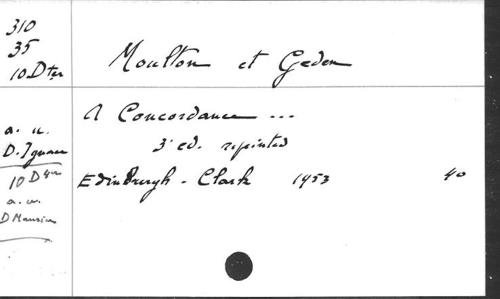 310
35
10 D ter
Moulton et Geden
A Concordance ...
3e ed. reprinted
a. u.
D. Ignace
Edinburgh - Clark 1953 40
10 D
a. u.
D Maurice